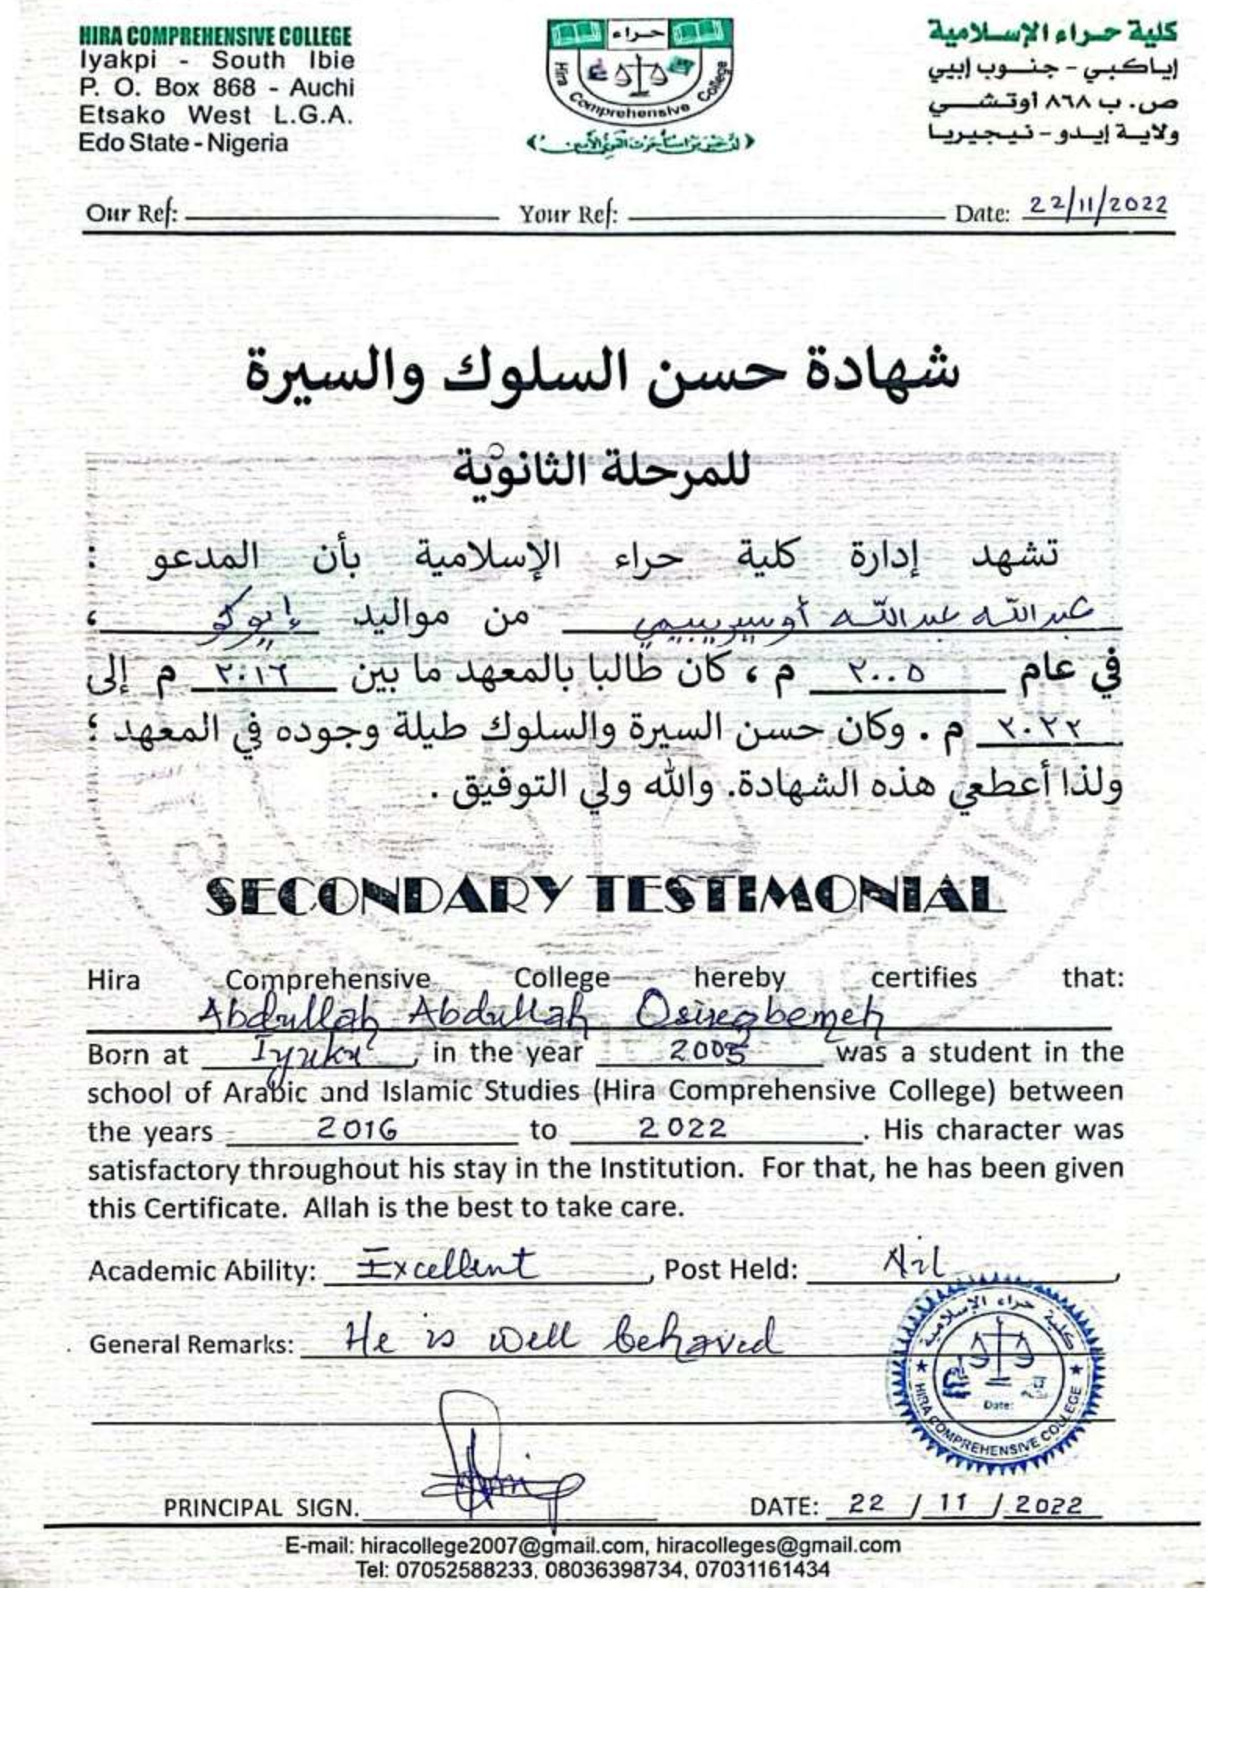 HIRA COMPREHENSIVE COLLEGE
Iyakpi - South Ibie
P. O. Box 868 - Auchi
Etsako West L.G.A.
Edo State - Nigeria
حراء
Hira Comprehensive College
كلية حراء الإسلامية
إياكبي - جنوب إيبي
ص. ب ٨٦٨ أوتشي
ولاية إيدو - نيجيريا
Our Ref: Your Ref: Date: 22/11/2022
شهادة حسن السلوك والسيرة
للمرحلة الثانوية
تشهد إدارة كلية حراء الإسلامية بأن المدعو :
عبد الله عبد الله أوسيريبيمي من مواليد إيوكو ،
في عام ٢٠٠٥ م ، كان طالبا بالمعهد ما بين ٢٠١٦ م إلى
٢٠٢٢ م . وكان حسن السيرة والسلوك طيلة وجوده في المعهد ؛
ولذا أعطي هذه الشهادة. والله ولي التوفيق .
SECONDARY TESTIMONIAL
Hira Comprehensive College hereby certifies that:
Abdullah Abdullah Osiregbemeh
Born at Iyuku, in the year 2005 was a student in the
school of Arabic and Islamic Studies (Hira Comprehensive College) between
the years 2016 to 2022. His character was
satisfactory throughout his stay in the Institution. For that, he has been given
this Certificate. Allah is the best to take care.
Academic Ability: Excellent, Post Held: Nil,
General Remarks: He is well behaved
كلية حراء الإسلامية
Date:
HIRA COMPREHENSIVE COLLEGE
PRINCIPAL SIGN. DATE: 22 / 11 / 2022
E-mail: hiracollege2007@gmail.com, hiracolleges@gmail.com
Tel: 07052588233, 08036398734, 07031161434